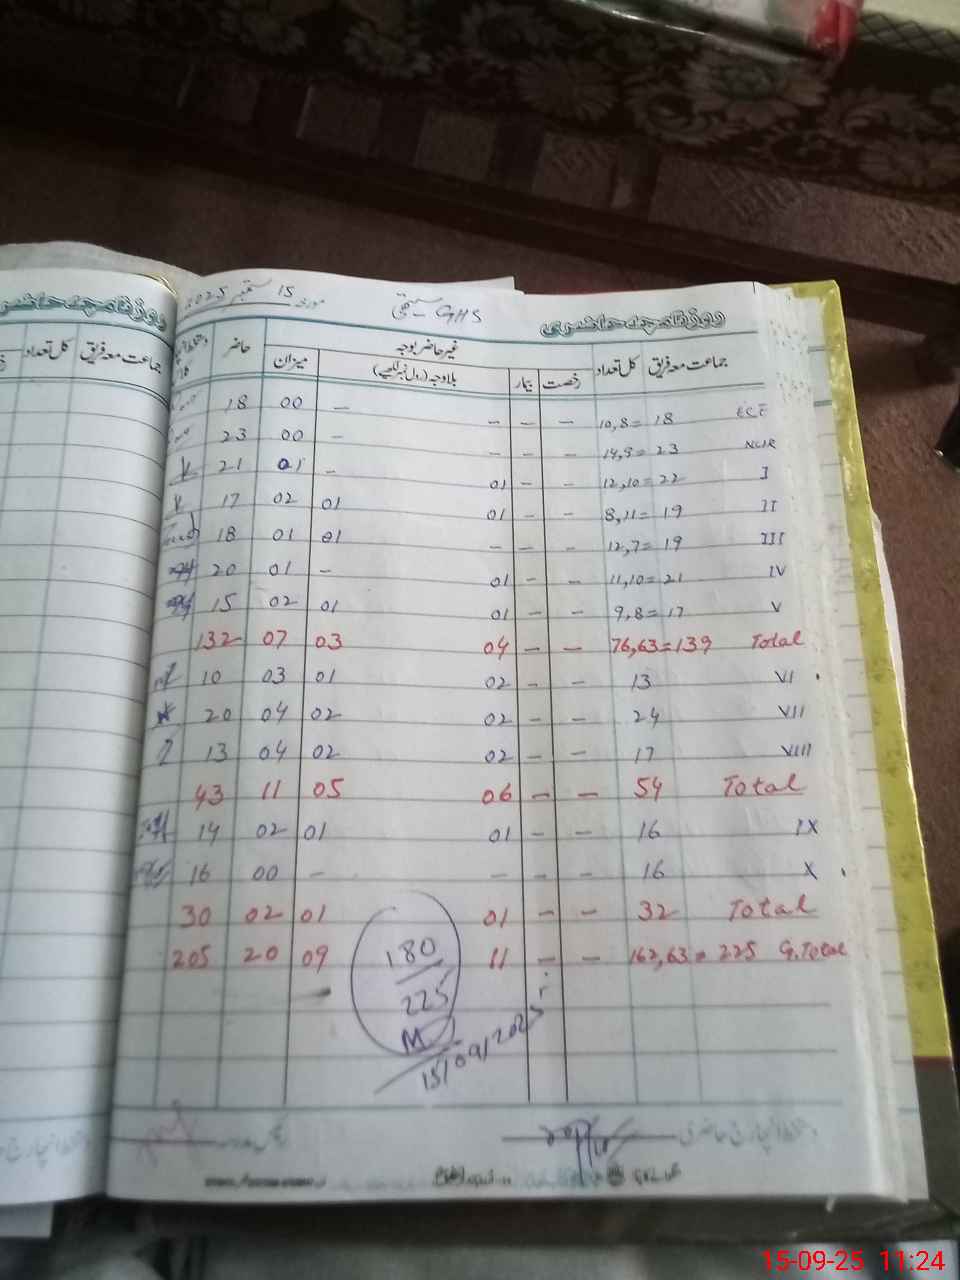 مورخہ 15 ستمبر 2025
GHS
روزنامچہ حاضری
جماعت معہ فریق کل تعداد رخصت بیمار بلاوجہ (رول نمبر لکھیے) میزان حاضر
غیر حاضر بوجہ
ECE 10,8 = 18 - - - - 00 18
NUR 14,9 = 23 - - - - 00 23
I 12,10 = 22 - - 01 - 01 21
II 8,11 = 19 - - 01 01 02 17
III 12,7 = 19 - - - 01 01 18
IV 11,10 = 21 - - 01 - 01 20
V 9,8 = 17 - - 01 01 02 15
Total 76,63 = 139 - - 04 03 07 132
VI 13 - - 02 01 03 10
VII 24 - - 02 02 04 20
VIII 17 - - 02 02 04 13
Total 54 - - 06 05 11 43
IX 16 - - 01 01 02 14
X 16 - - - - 00 16
Total 32 - - 01 01 02 30
G.Total 162,63 = 225 - - 11 09 20 205
180
225
15/09/2025
دستخط انچارج حاضری
روزنامچہ حاضری
جماعت معہ فریق کل تعداد
15-09-25 11:24